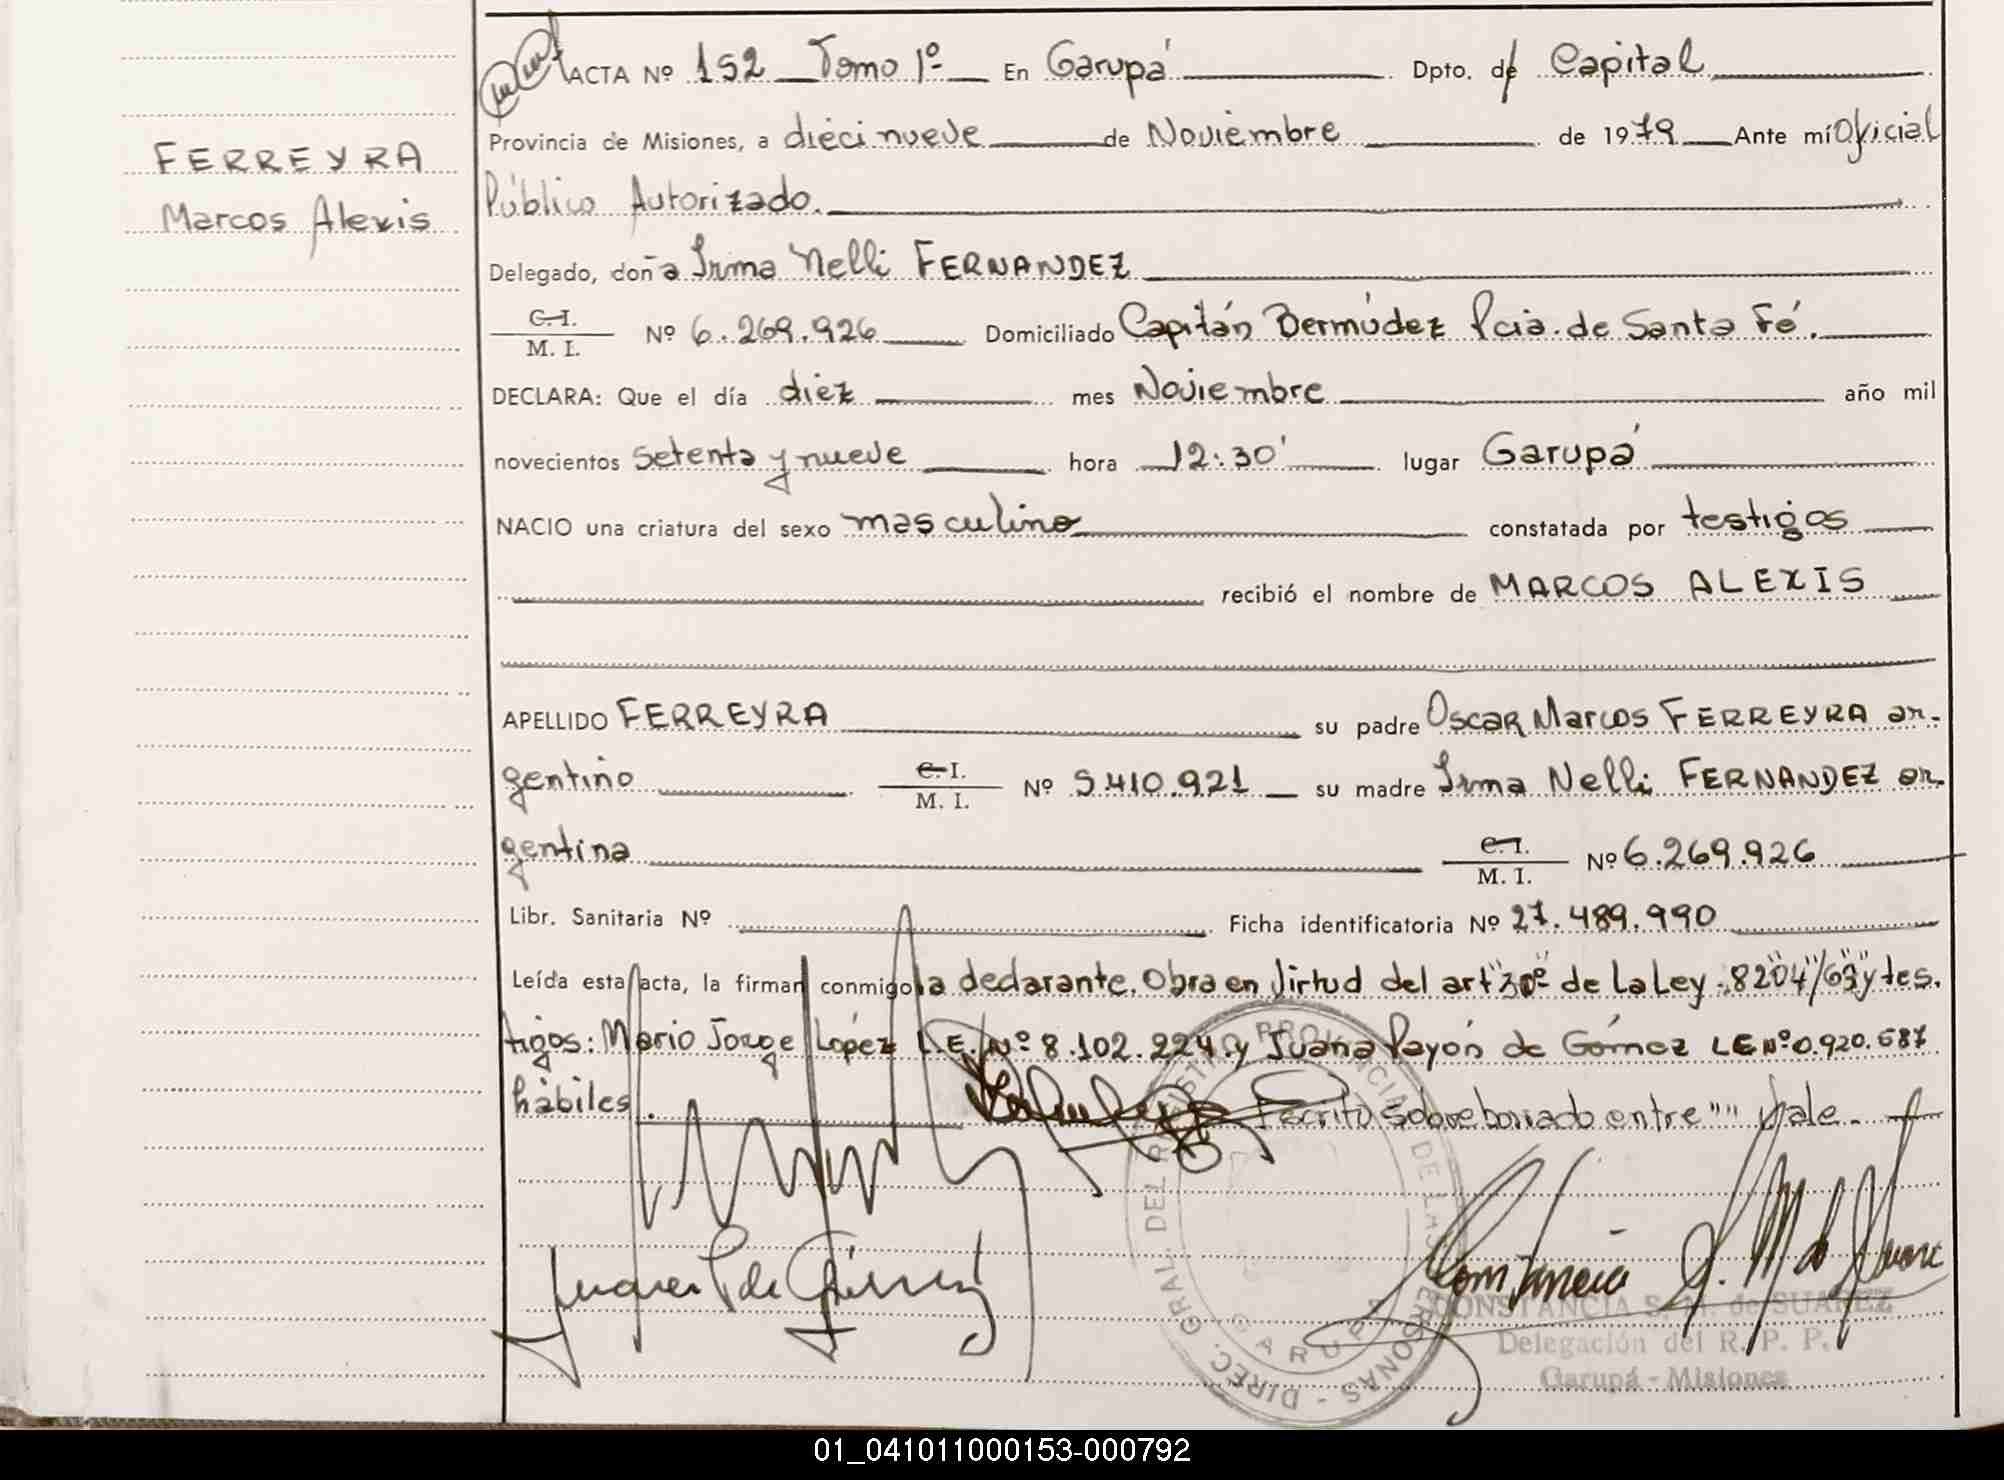 FERREYRA
Marcos Alexis
ACTA Nº 152 Tomo 1º En Garupá Dpto. de Capital
Provincia de Misiones, a diecinueve de Noviembre de 1979 Ante mí Oficial
Público Autorizado.
Delegado, doña Irma Nelli FERNANDEZ
C.I.
M. I. Nº 6.269.926 Domiciliado Capitán Bermúdez Pcia. de Santa Fé.
DECLARA: Que el día diez mes Noviembre año mil
novecientos setenta y nueve hora 12:30' lugar Garupá
NACIO una criatura del sexo masculino constatada por testigos
recibió el nombre de MARCOS ALEXIS
APELLIDO FERREYRA su padre Oscar Marcos FERREYRA ar-
gentino C.I.
M. I. Nº 5.410.921 su madre Irma Nelli FERNANDEZ ar-
gentina C.I.
M. I. Nº 6.269.926
Libr. Sanitaria Nº Ficha identificatoria Nº 27.489.990
Leída esta acta, la firman conmigo la declarante. Obra en virtud del art "30º" de la Ley "8204"/"63" y tes-
tigos: Mario Jorge López L.E. Nº 8.102.224 y Juana Payón de Gómez LE Nº 0.920.687
hábiles. Escrito sobreborrado entre "" Vale.
DIREC. GRAL. DEL REGISTRO PROVINCIAL DE LAS PERSONAS -
GARUPA
CONSTANCIA S. M. de SUAREZ
Delegación del R. P. P.
Garupá - Misiones
01_041011000153-000792